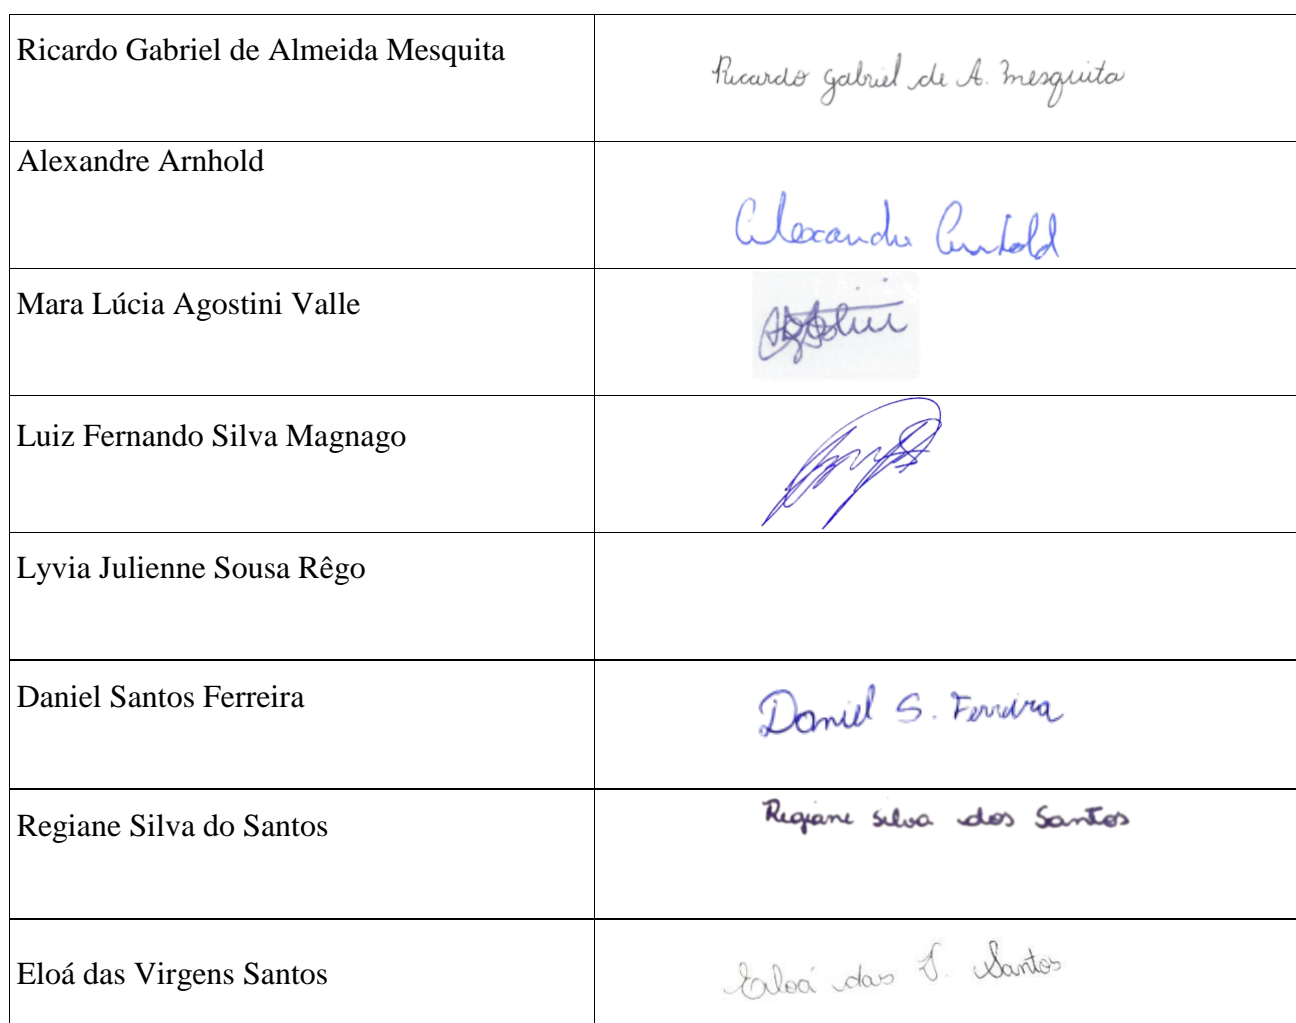 Ricardo Gabriel de Almeida Mesquita
Ricardo Gabriel de A. Mesquita
Alexandre Arnhold
Alexandre Arnhold
Mara Lúcia Agostini Valle
Agostini
Luiz Fernando Silva Magnago
Lyvia Julienne Sousa Rêgo
Daniel Santos Ferreira
Daniel S. Ferreira
Regiane Silva do Santos
Regiane Silva dos Santos
Eloá das Virgens Santos
Eloá das V. Santos